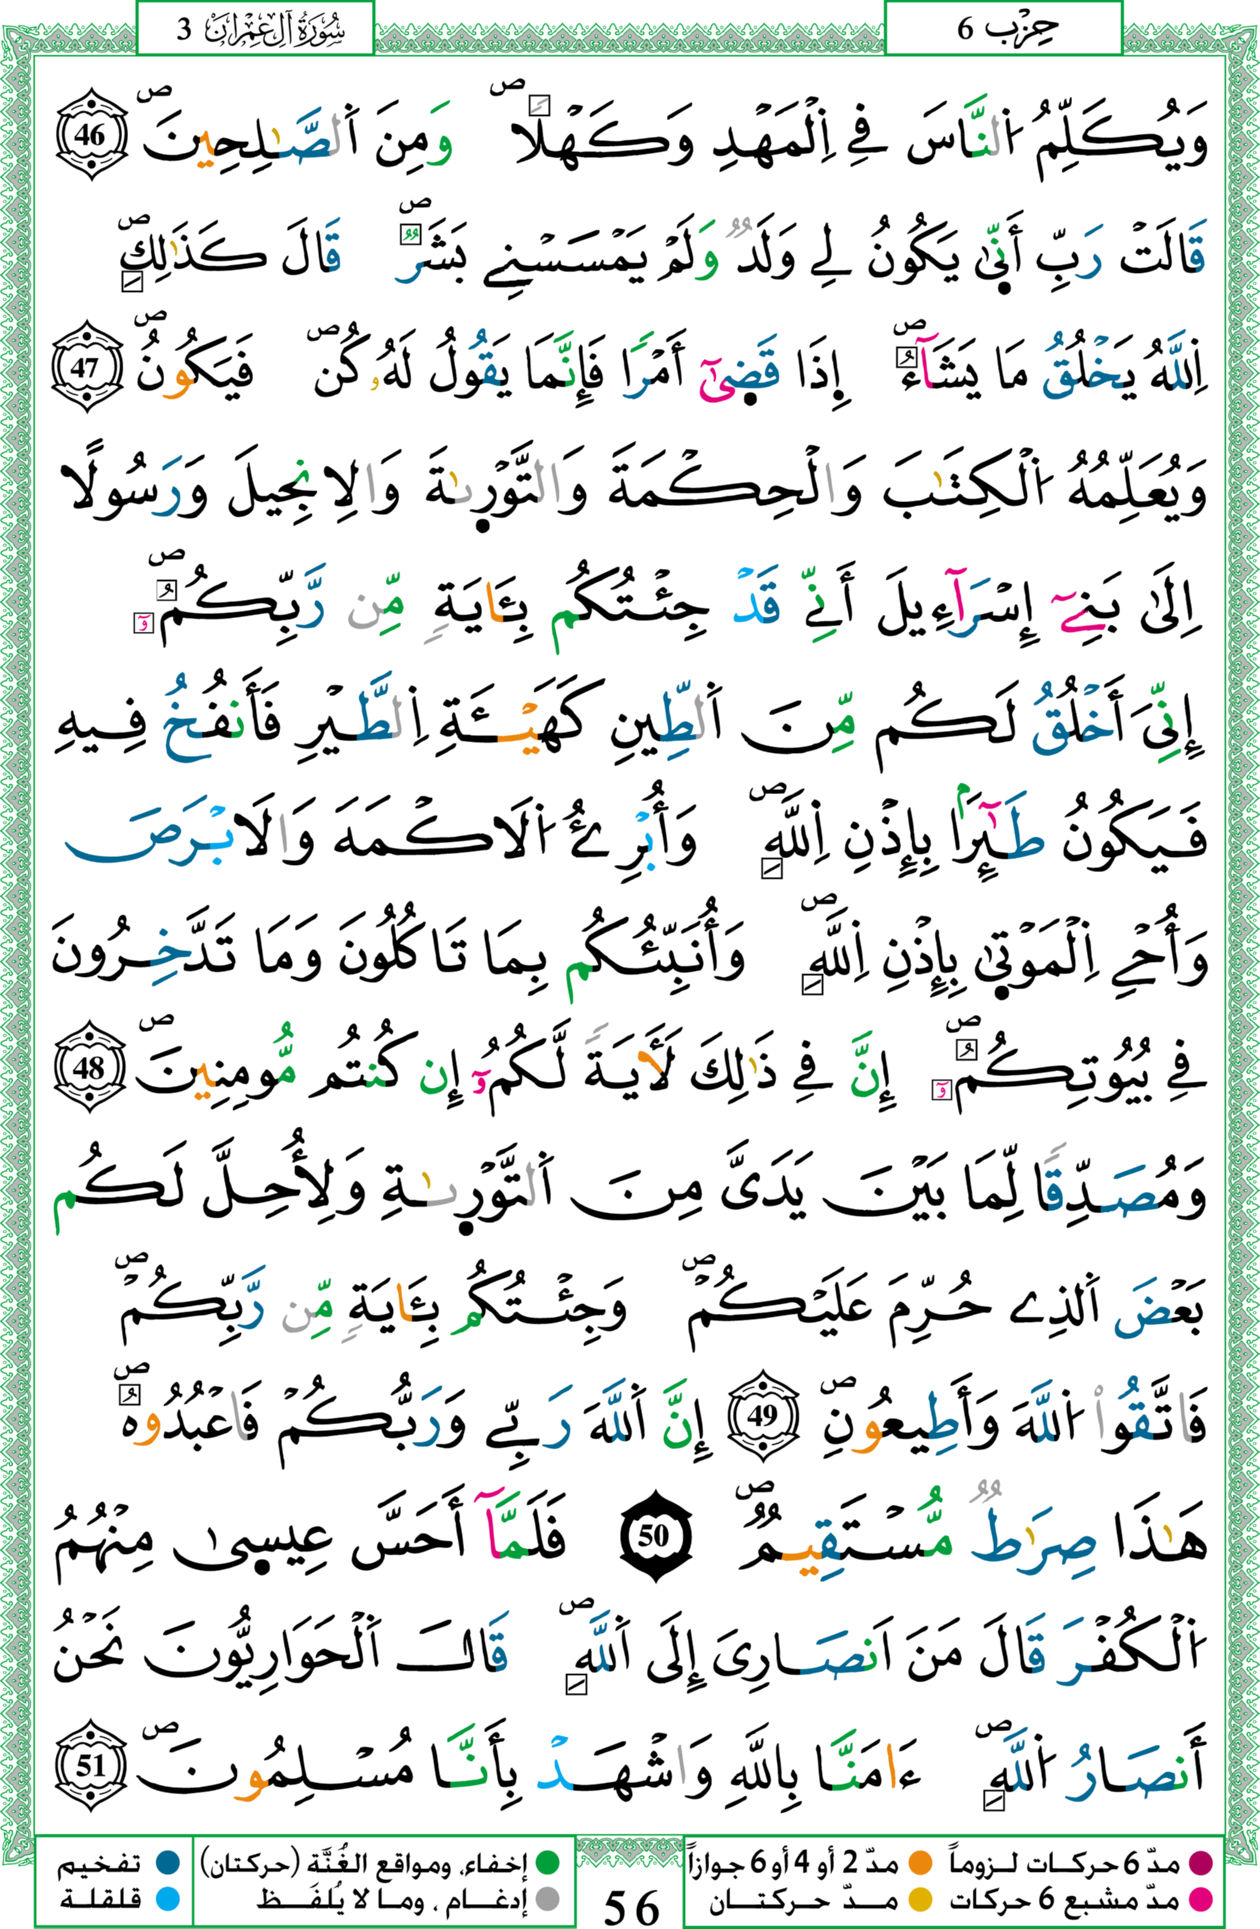 سُورَةُ آلِ عِمْرَانَ 3
حِزْب 6
وَيُكَلِّمُ اُ۬لنَّاسَ فِے اِ۬لْمَهْدِ وَكَهْلاٗ ص وَمِنَ اَ۬لصَّٰلِحِينَۖ 46
قَالَتْ رَبِّ أَنّ۪ىٰ يَكُونُ لِے وَلَدٞ وَلَمْ يَمْسَسْنِے بَشَرٞۖ قَالَ كَذَٰلِكِۖ
اِ۬للَّهُ يَخْلُقُ مَا يَشَآءُۖ إِذَا قَض۪ىٰٓ أَمْراٗ فَإِنَّمَا يَقُولُ لَهُۥ كُنۖ فَيَكُونُۖ 47
وَيُعَلِّمُهُ اُ۬لْكِتَٰبَ وَالْحِكْمَةَ وَالتَّوْر۪يٰةَ وَالِانجِيلَ وَرَسُولاً
اِلَىٰ بَنِےٓ إِسْرَآءِيلَ أَنِّے قَدْ جِئْتُكُم بِـَٔايَةٖ مِّن رَّبِّكُمُۥٓۖ
إِنِّيَ أَخْلُقُ لَكُم مِّنَ اَ۬لطِّينِ كَهَيْـَٔةِ اِ۬لطَّيْرِ فَأَنفُخُ فِيهِ
فَيَكُونُ طَٰٓئِراَۢ بِإِذْنِ اِ۬للَّهِۖ وَأُبْرِۓُ اُ۬لَاكْمَهَ وَالَابْرَصَ
وَأُحْيِ اِ۬لْمَوْت۪ىٰ بِإِذْنِ اِ۬للَّهِۖ وَأُنَبِّئُكُم بِمَا تَاكُلُونَ وَمَا تَدَّخِرُونَ
فِے بُيُوتِكُمُۥٓۖ إِنَّ فِے ذَٰلِكَ لَأٓيَةٗ لَّكُمُۥٓ إِن كُنتُم مُّومِنِينَۖ 48
وَمُصَدِّقاٗ لِّمَا بَيْنَ يَدَىَّ مِنَ اَ۬لتَّوْر۪يٰةِ وَلِأُحِلَّ لَكُم
بَعْضَ اَ۬لذِے حُرِّمَ عَلَيْكُمْۖ وَجِئْتُكُم بِـَٔايَةٖ مِّن رَّبِّكُمْۖ
فَاتَّقُواْ اُ۬للَّهَ وَأَطِيعُونِۖ 49 إِنَّ اَ۬للَّهَ رَبِّے وَرَبُّكُمْ فَاعْبُدُوهُۖ
هَٰذَا صِرَٰطٞ مُّسْتَقِيمٞۖ 50 فَلَمَّآ أَحَسَّ عِيس۪ىٰ مِنْهُمُ
اُ۬لْكُفْرَ قَالَ مَنَ اَنصَارِيَ إِلَى اَ۬للَّهِۖ قَالَ اَ۬لْحَوَارِيُّونَ نَحْنُ
أَنصَارُ اُ۬للَّهِۖ ءَامَنَّا بِاللَّهِ وَاشْهَدْ بِأَنَّا مُسْلِمُونَۖ 51
مدّ 6 حركات لـزوماً مدّ 2 أو 4 أو 6 جوازاً إخفاء، ومواقع الغُنَّة (حركتان) تفخيم
مدّ مشبع 6 حركات مـدّ حركتـان إدغـام ، ومـا لا يُلفَـظ قلقلة
56